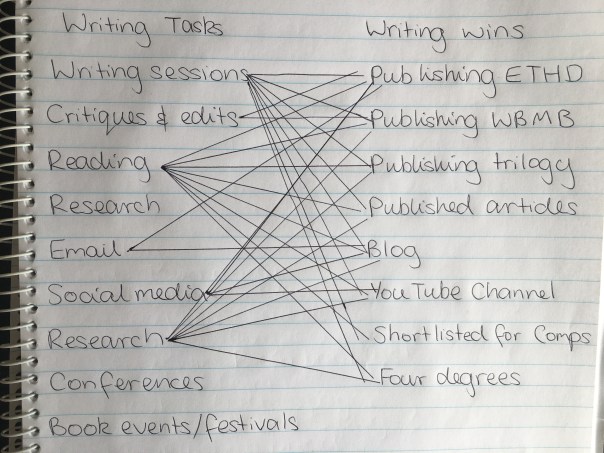 Writing Tasks
Writing wins
Writing sessions
Publishing ETHD
Critiques & edits
Publishing WBMB
Reading
Publishing trilogy
Research
Published articles
Email
Blog
Social media
YouTube Channel
Research
Shortlisted for Comps
Conferences
Four degrees
Book events/festivals